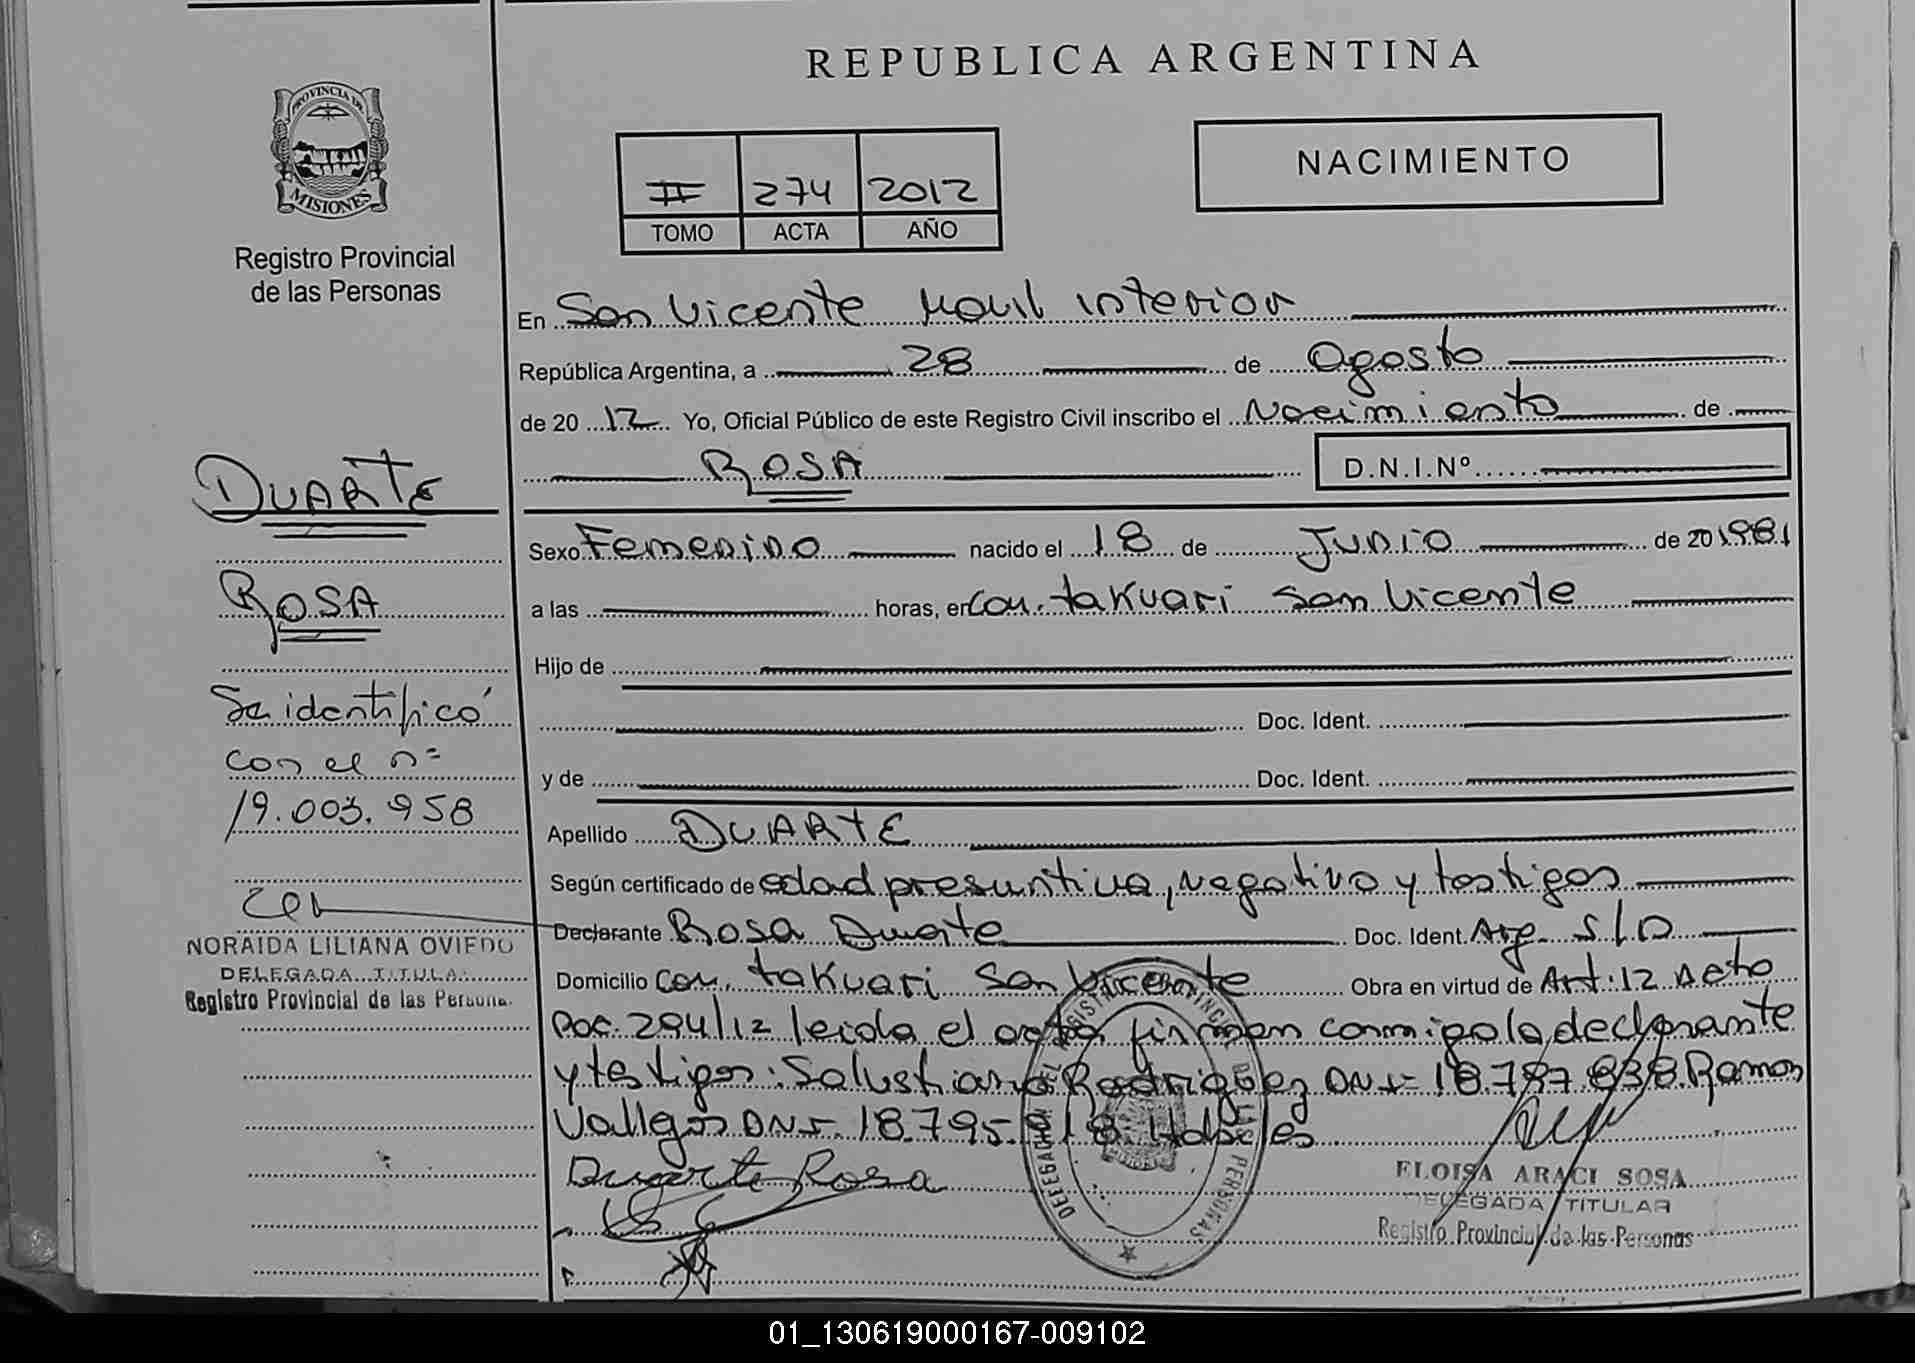 REPUBLICA ARGENTINA
PROVINCIA DE
MISIONES
Registro Provincial
de las Personas
NACIMIENTO
II 274 2012
TOMO ACTA AÑO
En San Vicente Movil interior
República Argentina, a 28 de Agosto
de 2012 Yo, Oficial Público de este Registro Civil inscribo el Nacimiento de
ROSA D.N.I.Nº
Sexo Femenino nacido el 18 de Junio de 201981
a las horas, en Con. takuari San Vicente
Hijo de
Doc. Ident.
y de Doc. Ident.
Apellido DUARTE
Según certificado de edad presuntiva, negativo y testigos
Declarante Rosa Duarte Doc. Ident. Arg. S/D
Domicilio Con. takuari San Vicente Obra en virtud de Art: 12 Acto
Doc. 294/12 leida el acta firman conmigo la declarante
y testigos: Salustiano Rodriguez DNI= 18.787.838. Ramon
Vallejos DNI. 18.795.918
Duarte Rosa
DUARTE
ROSA
Se identificó
con el nº
19.003.958
NORAIDA LILIANA OVIEDO
DELEGADA TITULA
Registro Provincial de las Persona
DELEGACION DEL REGISTRO PROVINCIAL DE LAS PERSONAS
ELOISA ARACI SOSA
DELEGADA TITULAR
Registro Provincial de las Personas
01_130619000167-009102